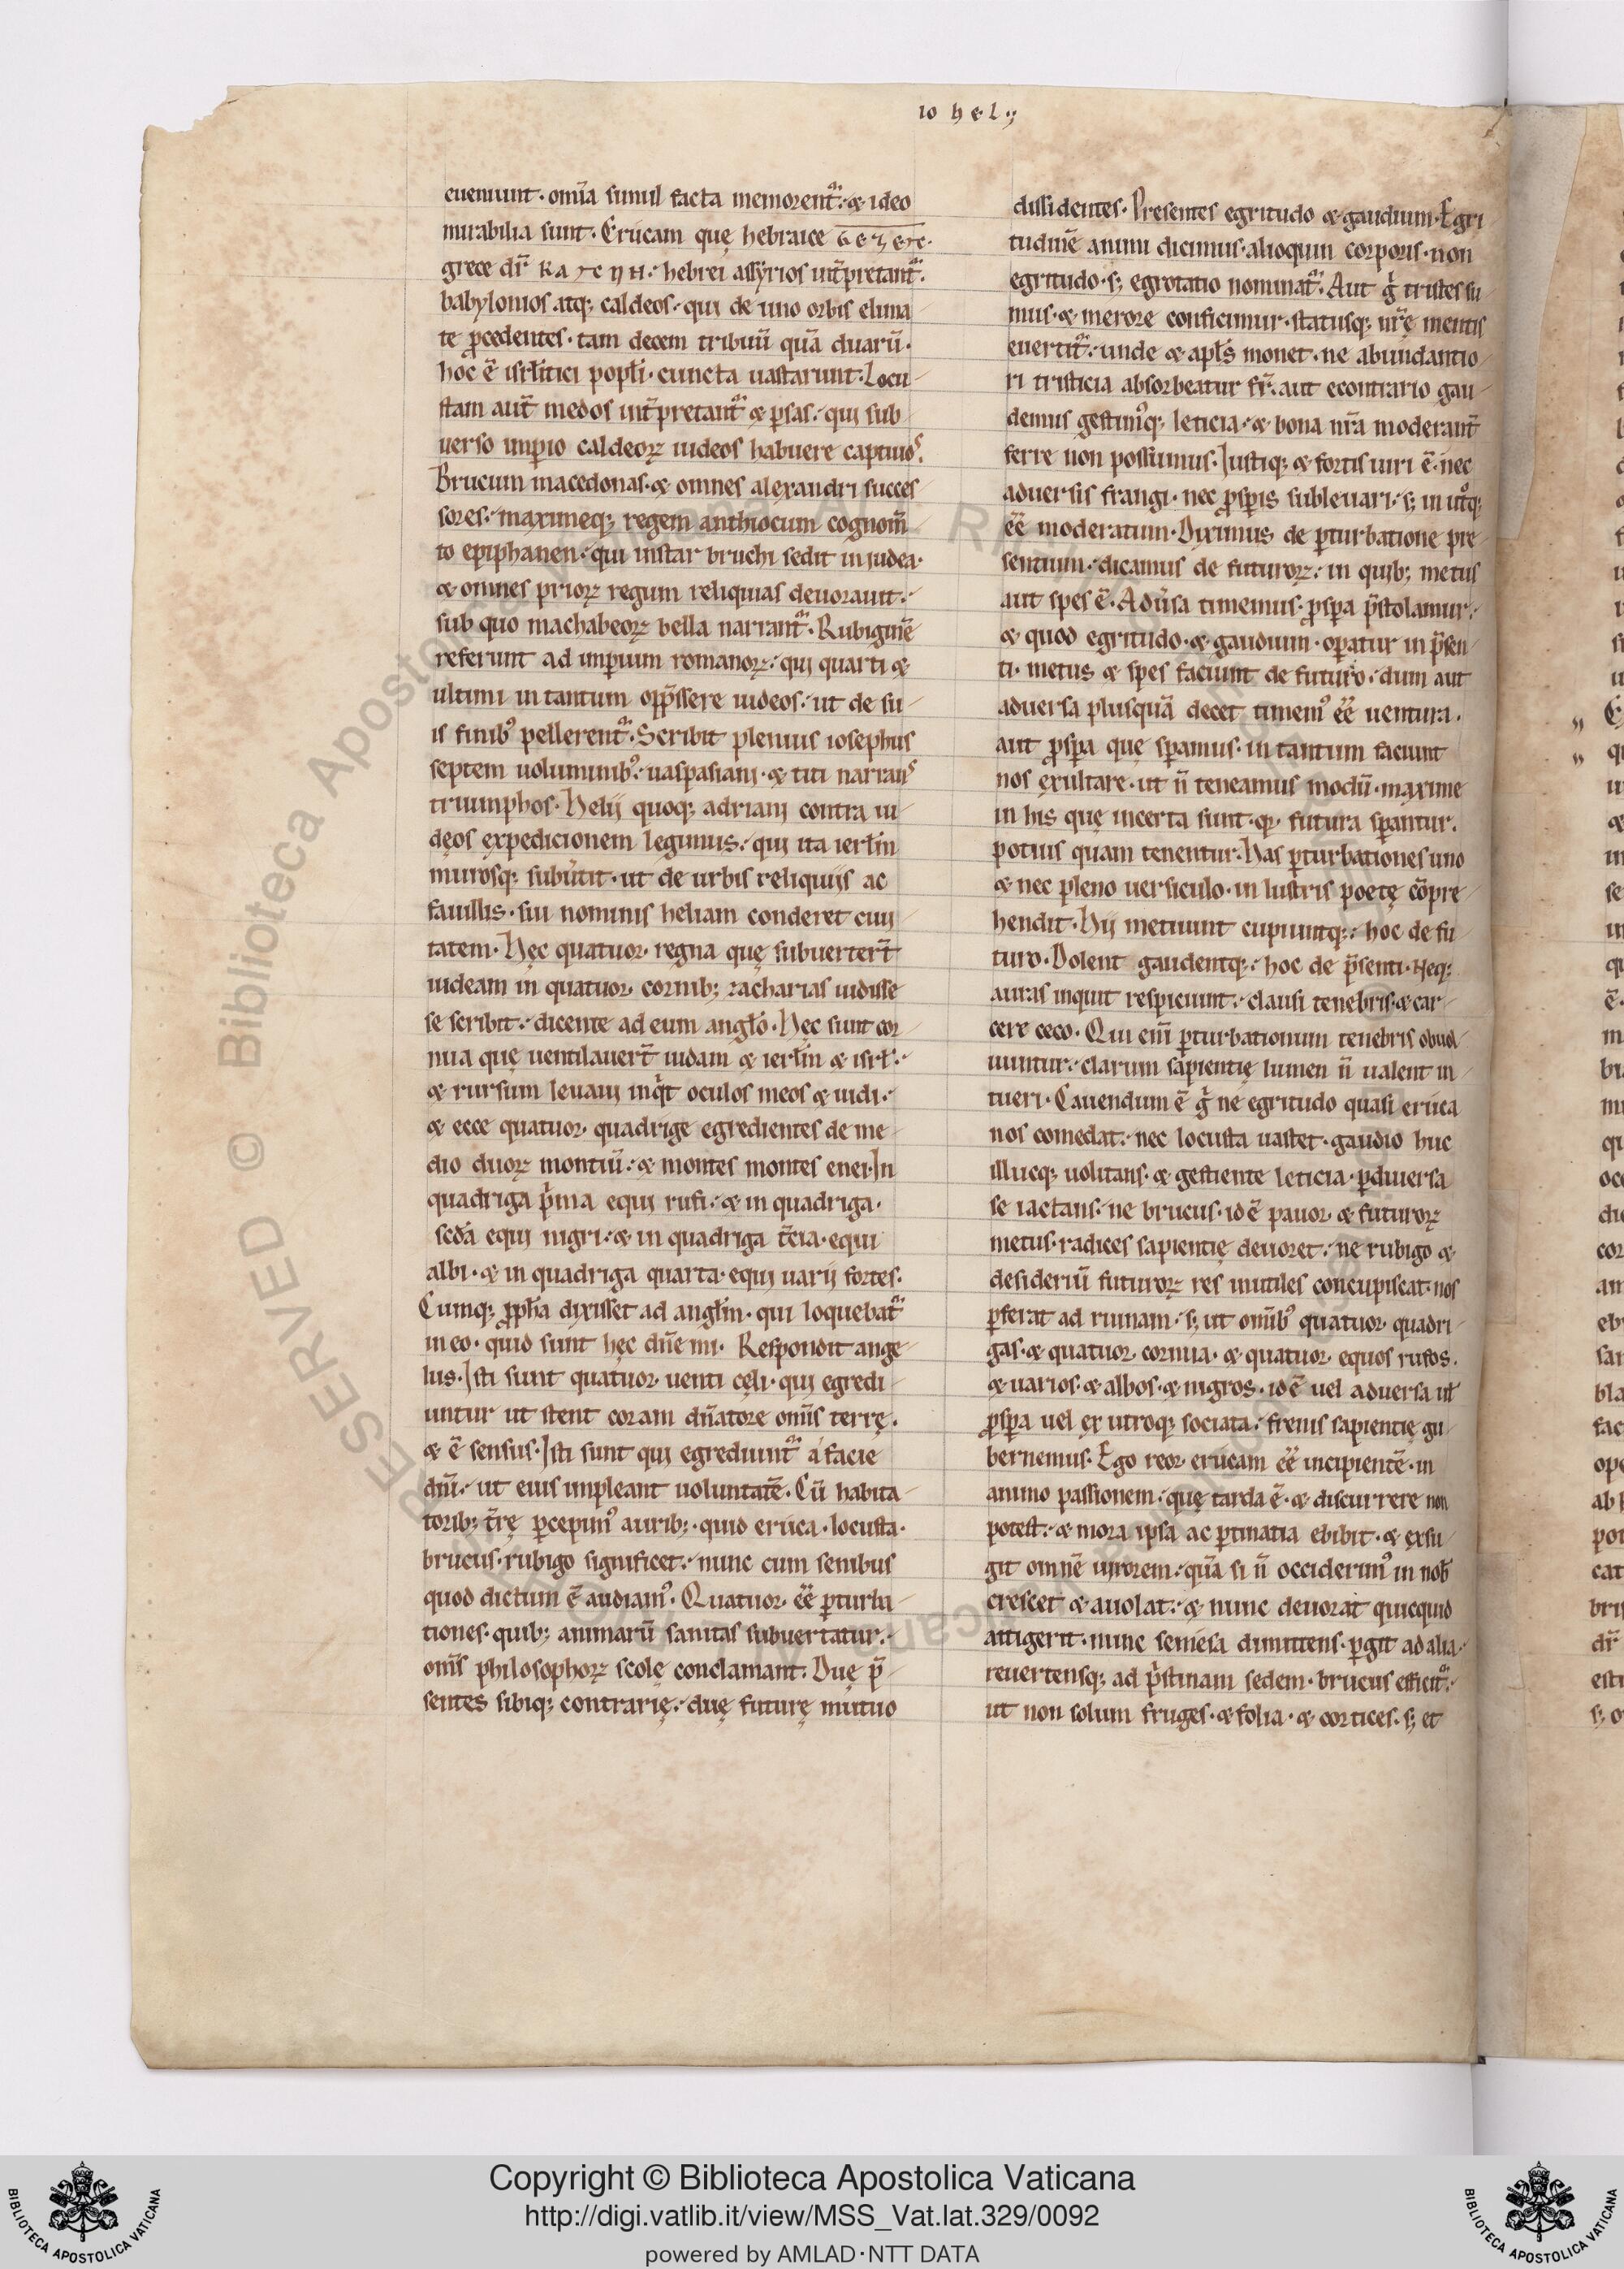 io hel.,
eueniunt· om̄ia simul facta memorent᷑:· & ideo
mirabilia sunt· Erucam quę hebraice
grece dr̄ hebrei assyrios int̄pretant᷑·
babylonios atq; caldeos:· qui de uno orbis clima
te ꝓcedentes· tam decem tribuū quā duarū·
hoc ē isrł̄itici popłi· cuncta uastarunt· Locu
stam aut̄ medos int̄pretant᷑ & ꝑsas:· qui sub
uerso imꝑio caldeoꝝ iudeos habuere captiuoˢ·
Brucum macedonas· & omnes alexandri succes
sores:· maximeq; regem anthiocum cognom̄
to epiphanen:· qui instar bruchi sedit in iudea·
& omnes prioꝝ regum reliquias deuorauit:·
sub quo machabeoꝝ bella narrant᷑· Rubiginē
referunt ad imꝑium romanoꝝ:· qui quarti &
ultimi in tantum opp̄ssere iudeos:· ut de su
is finibꝰ pellerent᷑· Scribit plenius iosephus
septem uoluminibꝰ:· uaspasiani· & titi narranˢ
triumphos· Helij quoq; adriani contra iu
dęos expedicionem legimus:· qui ita ierłm
murosq; subu̓tit· ut de urbis reliquijs ac
fauillis· sui nominis heliam conderet ciui
tatem· Hęc quatuor regna quę subuertert̄
iudeam in quatuor cornib; zacharias uidisse
se scribit:· dicente ad eum angło· Hęc sunt cor
nua quę uentilauert̄ iudam & ierłm & isrł:·
& rursum leuaui inqͥt oculos meos & uidi:·
& ecce quatuor quadrige egredientes de me
dio duoꝝ montiū:· & montes montes enei· In
quadriga pͥma equi rufi:· & in quadriga·
sc̄da equi nigri:· & in quadriga t̄cia· equi
albi· & in quadriga quarta· equi uarij fortes·
Cumq; ꝓph̄a dixisset ad angłm· qui loquebat᷑
in eo· quid sunt hęc dn̄e mi· Respondit ange
lus· Isti sunt quatuor uenti cęli· qui egredi
untur ut stent coram dn̄atore omīs terrę·
& ē sensus· Isti sunt qui egrediunt᷑ a facie
dn̄i:· ut eius impleant uoluntatē· Cū habita
torib; t̄rę ꝑcepimꝰ aurib;· quid eruca· locusta·
brucus· rubigo significet:· nunc cum senibus
quod dictum ē audiamꝰ· Quatuor eē̄ ꝑturba
tiones· quib; animarū sanitas subuertatur:·
om̄s philosophoꝝ scolę conclamant· Duę p̄
sentes sibiq; contrarię:· duę futurę mutuo
dissidentes· Presentes egritudo & gaudium· Egri
tudinē animi dicimus· alioquin corporis· non
egritudo· s; egrotatio nominat᷑· Aut gͥ tristes su
mus· & merore conficimur· statusq; nr̄ę mentis
euertit᷑:· unde & apłs monet· ne abundantio
ri tristicia absorbeatur fr̄· aut econtrario gau
demus gestimꝰq; leticia:· & bona nr̄a moderant̄
ferre non possumus· Iustiq; & fortis uiri ē· nec
aduersis frangi· nec ꝓsꝑis subleuari:· s; in ut̊q;
eē̄ moderatum· Diximus de ꝑturbatione pre
sentium:· dicamus de futuroꝝ:· in quib; metus
aut spes ē· Adu̓sa timemus· ꝓsꝑa p̄stolamur:·
& quod egritudo· & gaudium· oꝑatur in p̄sen
ti· metus & spes faciunt de futuro:· dum aut
aduersa plusquā decet timemꝰ eē̄ uentura·
aut ꝓsꝑa quę sꝑamus· in tantum faciunt
nos exultare· ut n̄ teneamus modū· maxime
in his quę incerta sunt· q; futura sꝑantur·
potius quam tenentur· Has ꝑturbationes uno
& nec pleno uersiculo· in lustris poetę cōpre
hendit· Hij metuunt cupiuntq;:· hoc de fu
turo· Dolent gaudentq;:· hoc de p̄senti· Neq;
auras inquit respiciunt:· clausi tenebris· & car
cere ceco· Qui eni̅ ꝑturbationum tenebris obuol
uuntur:· clarum sapientię lumen n̄ ualent in
tueri· Cauendum ē gͥ ne egritudo quasi eruca
nos comedat:· nec locusta uastet· gaudio huc
illucq; uolitans· & gestiente leticia· ꝑ diuersa
se iactans:· ne brucus· id ē pauor & futuroꝝ
metus· radices sapientię deuoret:· ne rubigo &
desideriū futuroꝝ res inutiles concupiscat· nos
ꝑferat ad ruinam:· s; ut omībꝰ quatuor quadri
gas· & quatuor cornua· & quatuor equos rufos·
& uarios· & albos· & nigros· id ē uel aduersa uł
ꝓsꝑa uel ex utroq; sociata:· frenis sapientię gu
bernemus· Ego reor erucam eē̄ incipientē· in
animo passionem:· quę tarda ē· & discurrere non
potest:· & mora ipsa ac ꝑtinatia ebibit· & exsu
git omnē uirorem:· quā si n̄ occiderimꝰ in nob̄
crescet & auolat:· & nunc deuorat quicquid
attigerit· nunc semesa dimittens· ꝑgit ad alia:·
reuertensq; ad pͥstinam sedem· brucus efficit᷑:·
ut non solum fruges· & folia· & cortices· s; et
Copyright © Biblioteca Apostolica Vaticana
http://digi.vatlib.it/view/MSS_Vat.lat.329/0092
powered by AMLAD·NTT DATA
BIBLIOTECA APOSTOLICA VATICANA
BIBLIOTECA APOSTOLICA VATICANA